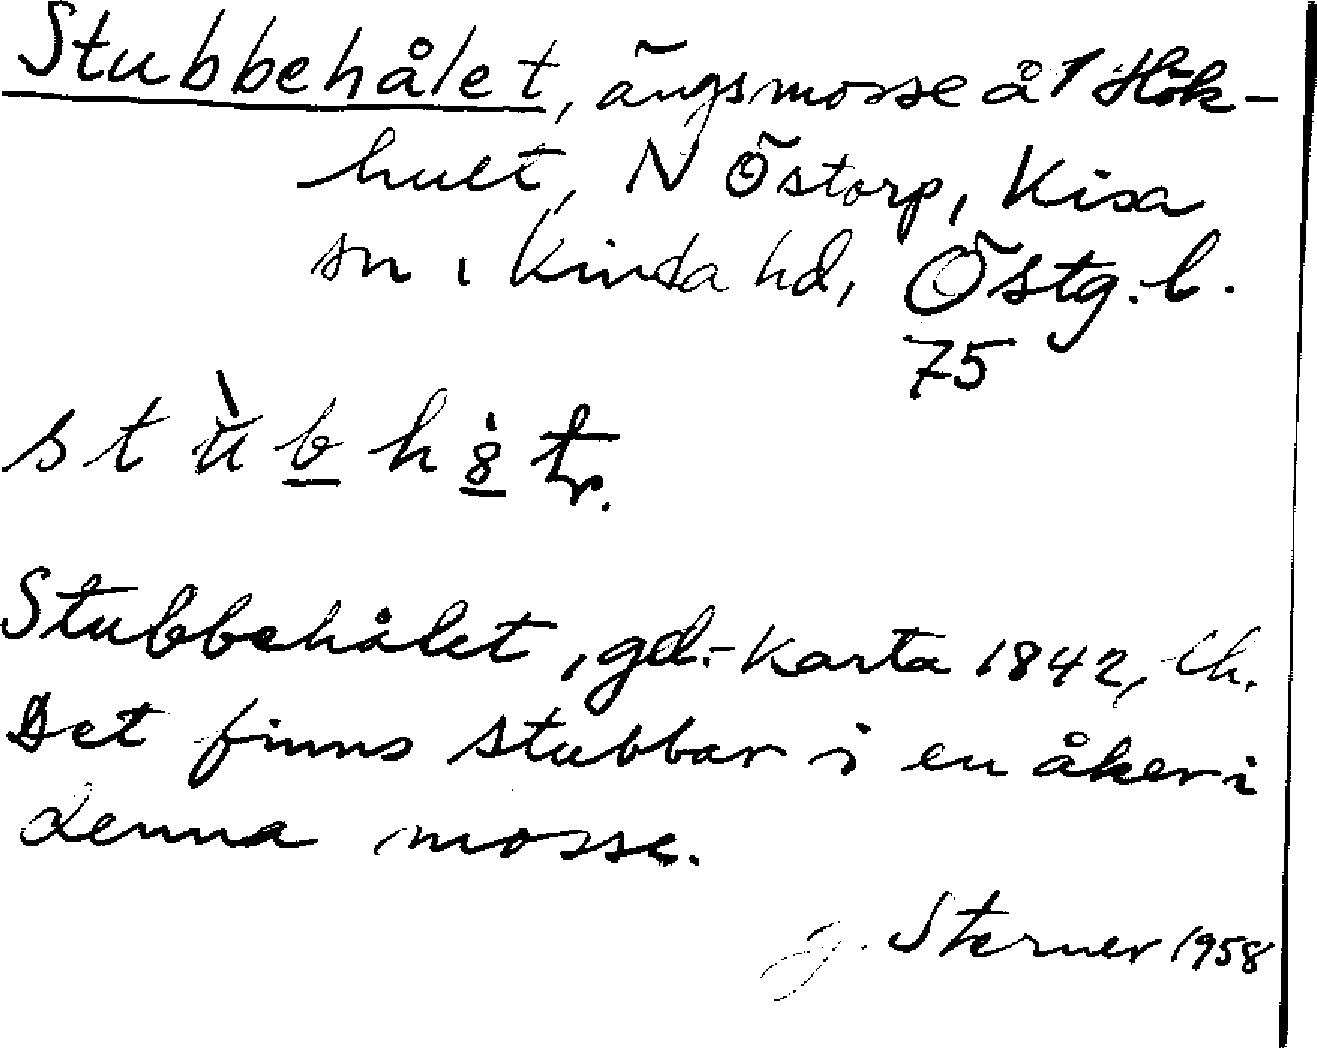 Stubbehålet, ängsmosse å 1 Hök-
hult, N Östorp, Kisa
sn i Kinda hd, Östg. l.
75
Stubbehålet, gd.-karta 1842, ch.
Det finns stubbar i en åker i
denna mosse.
J. Sterner 1958